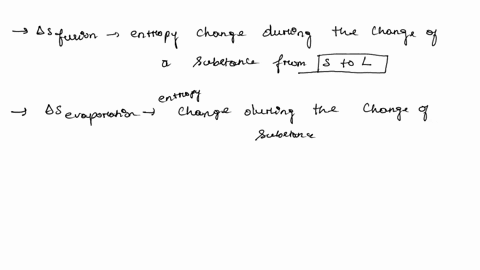 → ΔS fusion → entropy change during the change of
a substance from S to L
→ ΔS evaporation → entropy change during the change of
substance